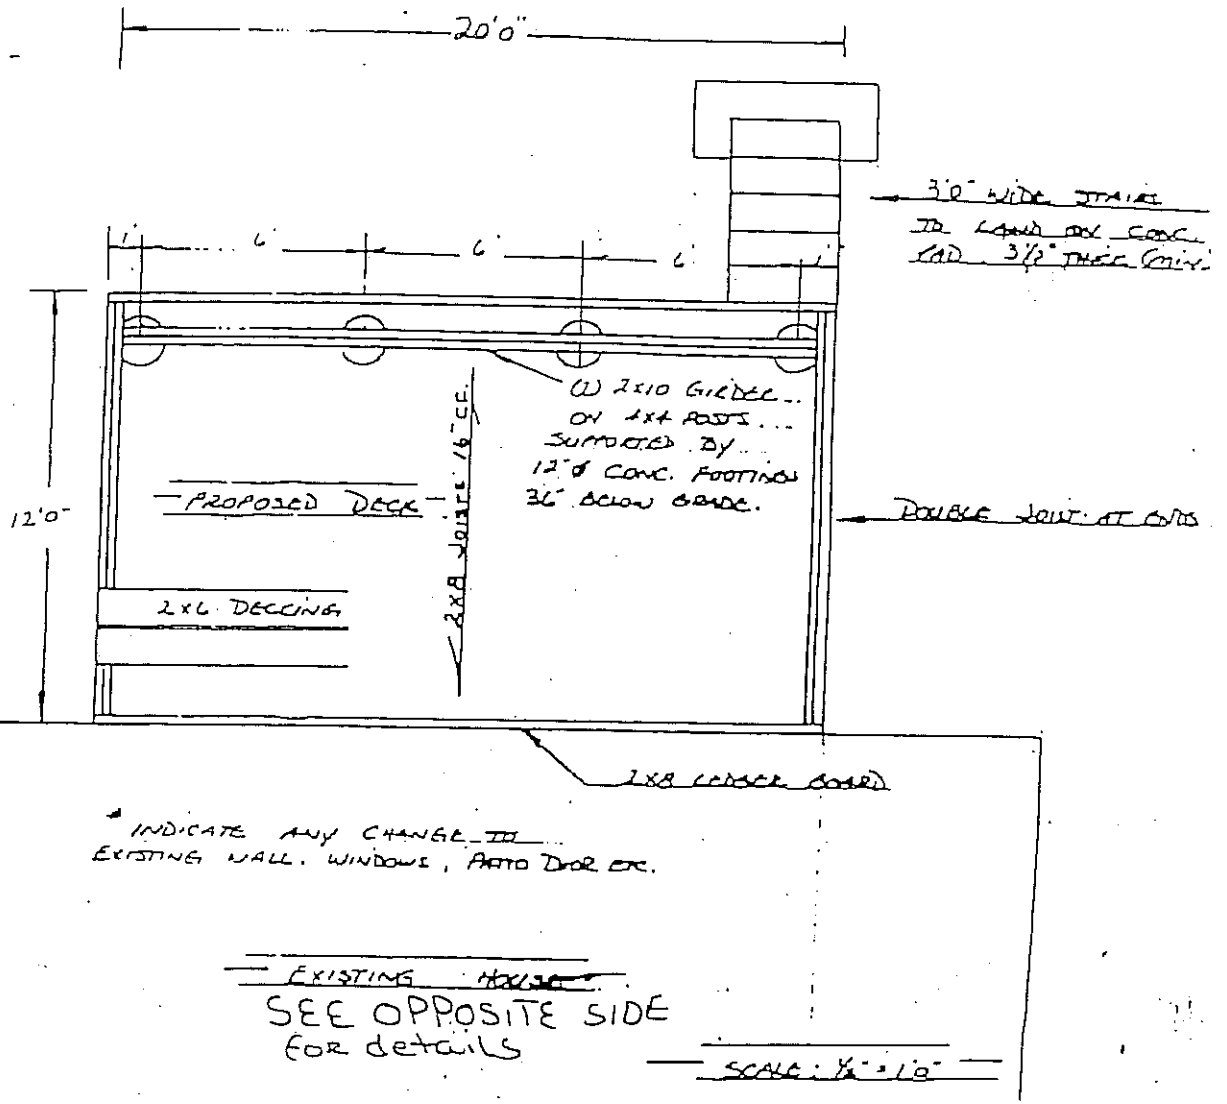 20'0"
3'0" WIDE STAIRS
TO LAND ON CONC.
PAD 3 1/2" THICK (MIN.
1' 6' 6' 6' 1'
(2) 2x10 GIRDER...
ON 4x4 POSTS...
SUPPORTED BY...
12"ø CONC. FOOTINGS
36" BELOW GRADE.
2x8 JOISTS 16"
PROPOSED DECK
12'0"
DOUBLE JOIST AT ENDS
2x6 DECKING
2x8 LEDGER BOARD
* INDICATE ANY CHANGE TO...
EXISTING WALL, WINDOWS, PATIO DOOR ETC.
EXISTING HOUSE
SEE OPPOSITE SIDE
FOR details
SCALE: 1'0"